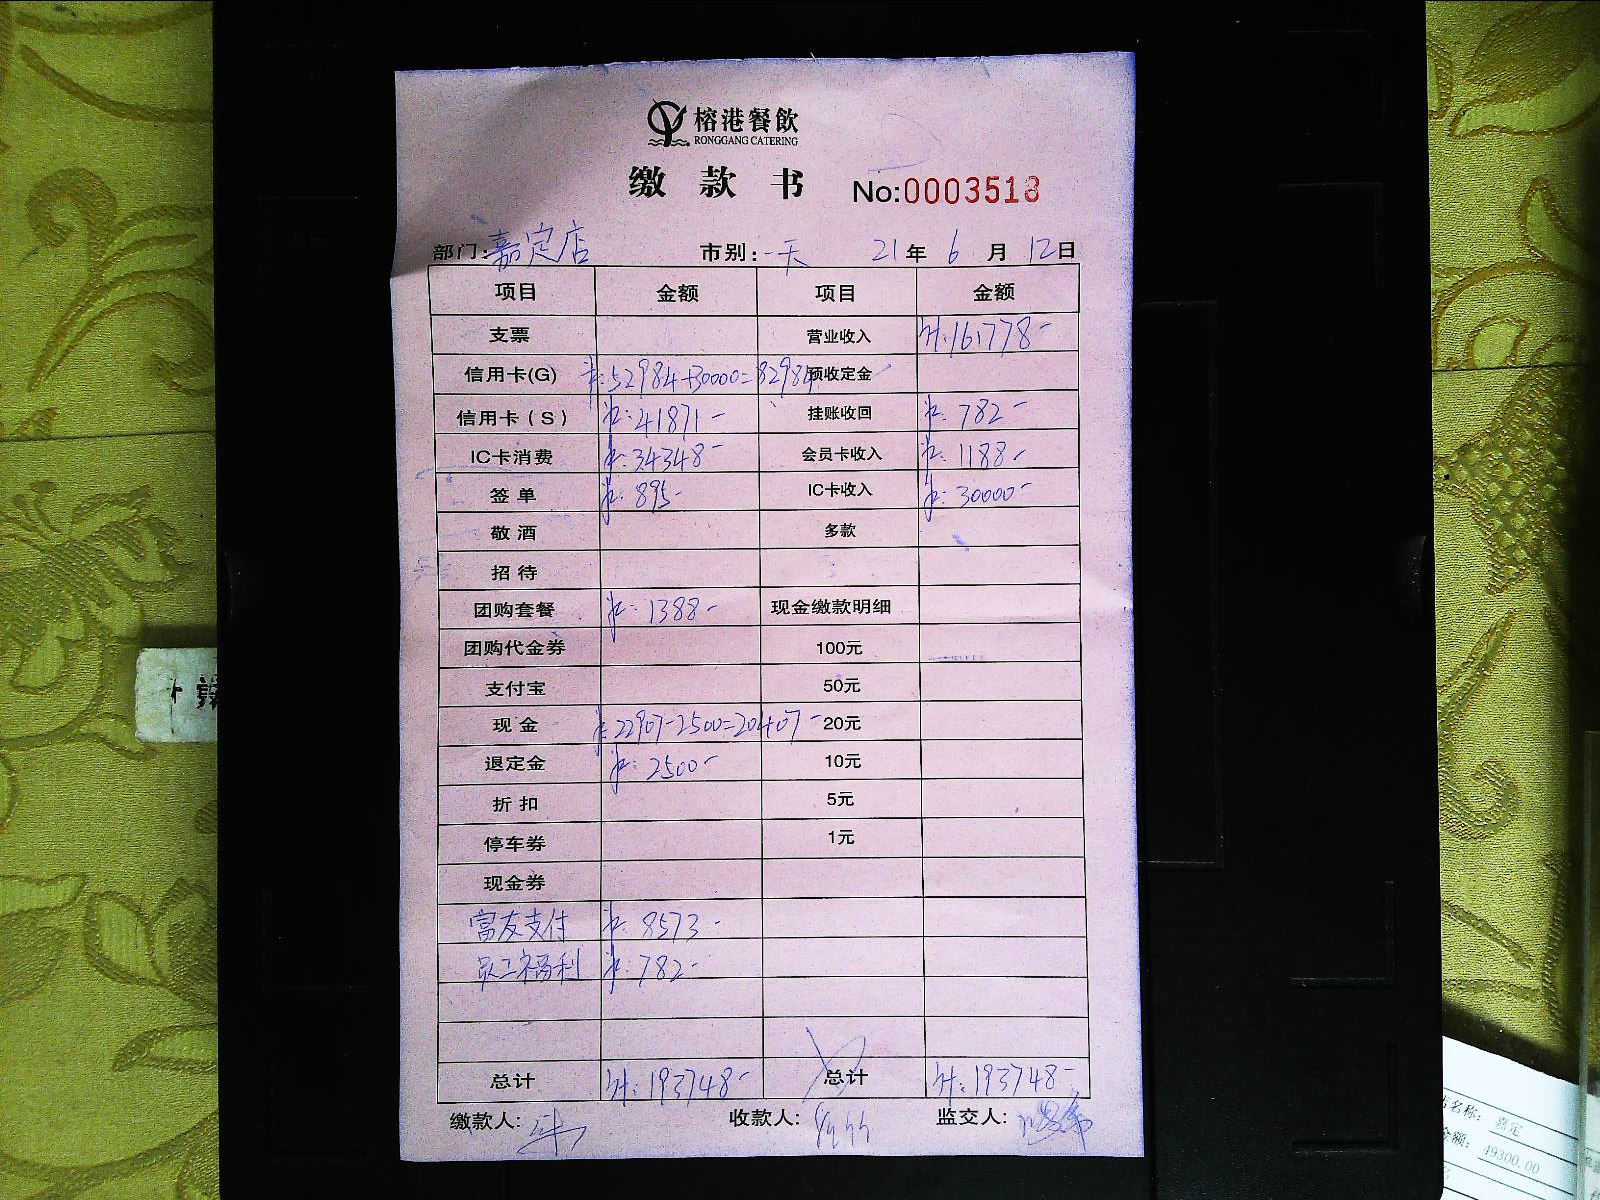 榕港餐飲
RONGGANG CATERING
缴款书 No:0003518
部门:嘉定店 市别:一天 21年6月12日
项目 金额 项目 金额
支票 营业收入 计:161778-
信用卡(G) 卡:52984+30000=82984 预收定金
信用卡(S) 卡:41871- 挂账收回 卡:782-
IC卡消费 卡:34348- 会员卡收入 卡:1188-
签单 卡:895- IC卡收入 卡:30000-
敬酒 多款
招待
团购套餐 卡:1388- 现金缴款明细
团购代金券 100元
支付宝 50元
现金 卡:22907-2500=20407- 20元
退定金 卡:2500- 10元
折扣 5元
停车券 1元
现金券
富友支付 卡:8573-
员工福利 卡:782-
总计 计:193748- 总计 计:193748-
缴款人: 收款人: 监交人:
店名称: 嘉定
金额: 49300.00